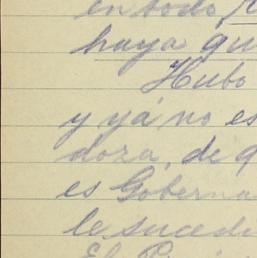 en todo
haya qu
Hubo
y yá no es
doza, de q
es Goberna
le sucedi
El